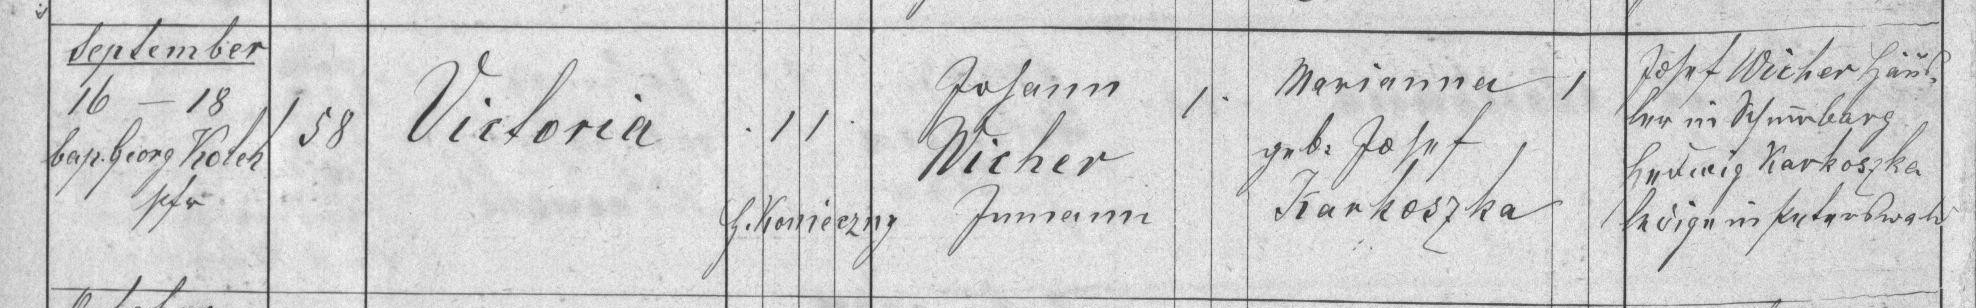 September
16 – 18
bap. Georg Kolek
pfr
58
Victoria
. 1 1 .
H. Konieczny
Johann
Wicher
Inmann
1.
Marianna
geb: Josef
Karkoszka
1
Josef Wicher Häus-
ler in Schumbarg
Hedwig Karkoszka
ledige in Peterswald